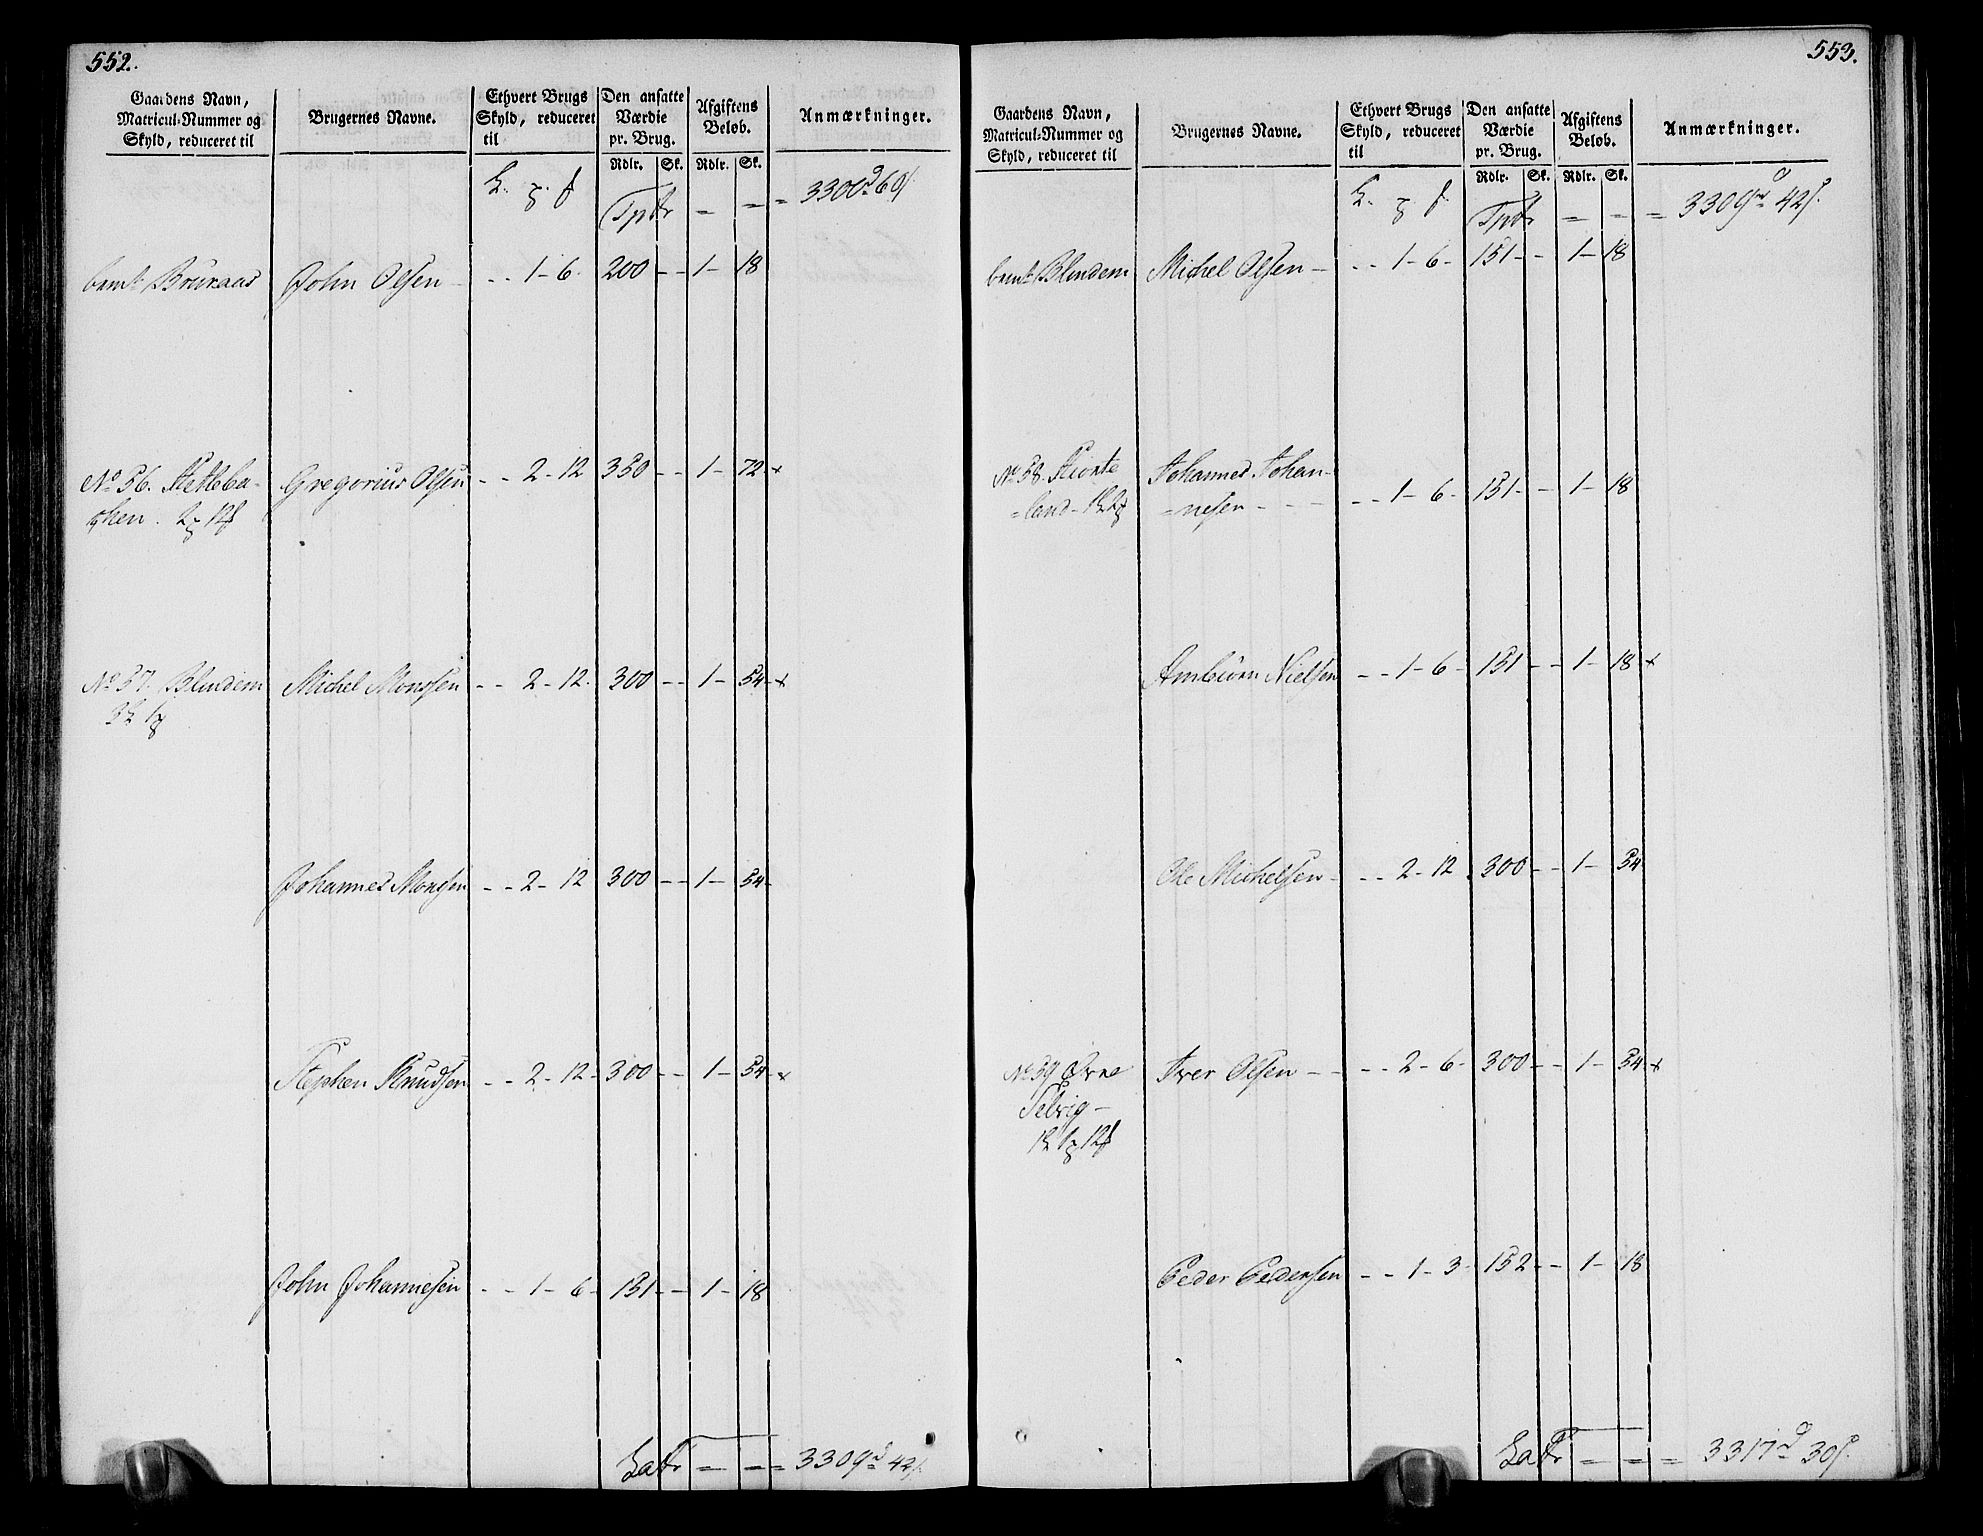 552.
Gaardens Navn, Matricul-Nummer og Skyld, reduceret til | Brugernes Navne. | Ethvert Brugs Skyld, reduceret til | Den ansatte Værdie pr. Brug. | Afgiftens Beløb. | Anmærkninger.
Rdlr. Sk. Rdlr. Sk.
Tptr = = = 3306 d 60 s.
bemt Bruraas John Olsen - - 1 - 6 - 200 - - 1 - 18
No 56. Gregorius Olsen - - 2 - 12 350 - - 1 - 72 x
No 57. Blindem Michel Monssen - - 2 - 12 - 300 - - 1 - 54 - x
Johannes Monsen - - 2 - 12 300 - - 1 - 54 -
Stephen Knudsen - - 2 - 12 - 300 - - 1 - 54 - x
John Johannesen - - 1 - 6 - 151 - - 1 - 18
Latr = = = 3309 d 42 s.
553.
Gaardens Navn, Matricul-Nummer og Skyld, reduceret til | Brugernes Navne. | Ethvert Brugs Skyld, reduceret til | Den ansatte Værdie pr. Brug. | Afgiftens Beløb. | Anmærkninger.
Rdlr. Sk. Rdlr. Sk.
Tptr = = = 3309 d 42 s.
bemt Blindem Michel Olsen - - - 1 - 6 - 151 - - 1 - 18
No 58. Hiorte Johannes Johan-
=land - =nesen - - - - - 1 - 6 - 151 - - 1 - 18
Arnbiörn Nielsen - - 1 - 6 - 151 - - 1 - 18 x
Ole Michelsen - - - 2 - 12 300 - - 1 - 54
No 59 Øvre Iver Olsen - - - - 2 - 6 - 300 - - 1 - 54 x
Selvig -
Peder Pedersen - - 1 - 3 - 152 - - 1 - 18
Latr = = = 3317 d 30 s.